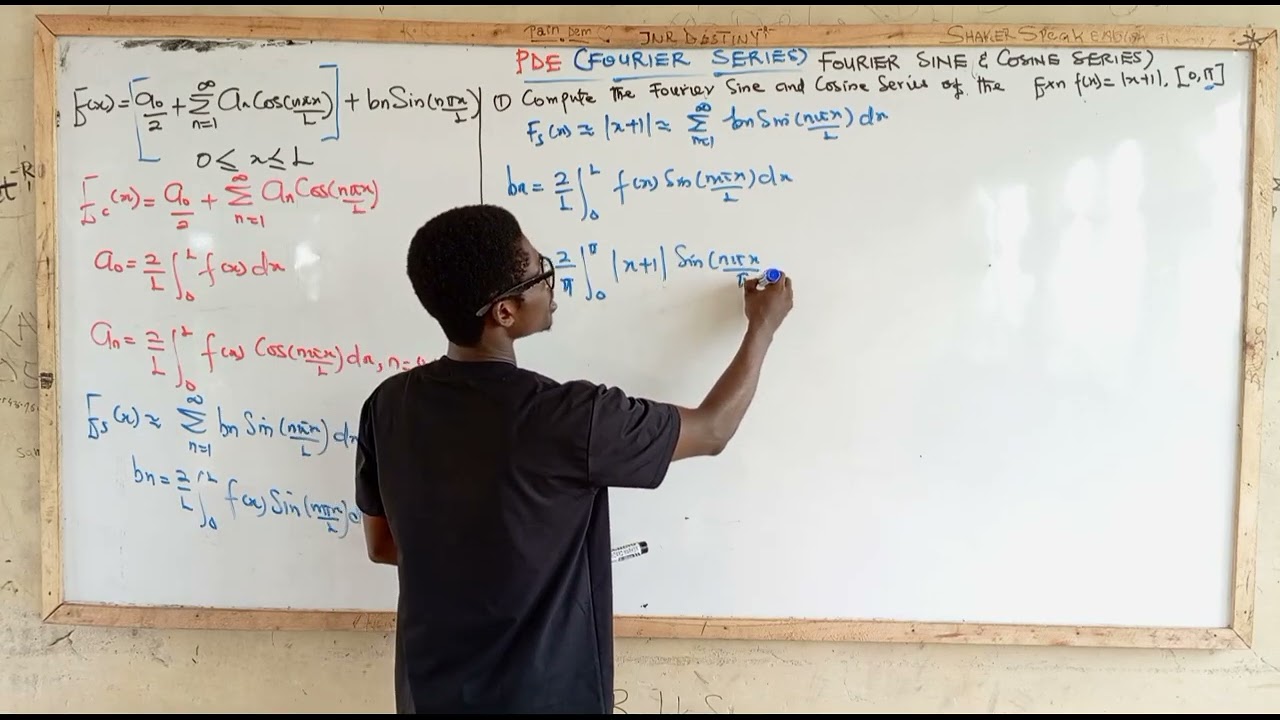 Pain Dem JNR DESTINY SHAKER SPEAK
PDE (FOURIER SERIES) FOURIER SINE & COSINE SERIES)
F(x) = [a₀/2 + ∑_{n=1}^{∞} aₙ Cos(nπx/L)] + bn Sin(nπx/L)
0 ≤ x ≤ L
F_c(x) = a₀/2 + ∑_{n=1}^{∞} aₙ Cos(nπx/L)
a₀ = 2/L ∫₀^L f(x) dx
aₙ = 2/L ∫₀^L f(x) Cos(nπx/L) dx, n=
F_s(x) ≈ ∑_{n=1}^{∞} bn Sin(nπx/L) dx
bn = 2/L ∫₀^L f(x) Sin(nπx/L)
① Compute the Fourier Sine and Cosine Series of the Fxn f(x) = |x+1|, [0, π]
F_s(x) ≈ |x+1| ≈ ∑_{n=1}^{∞} bn Sin(nπx/L) dx
bn = 2/L ∫₀^L f(x) Sin(nπx/L) dx
2/π ∫₀^π |x+1| Sin(nπx/π